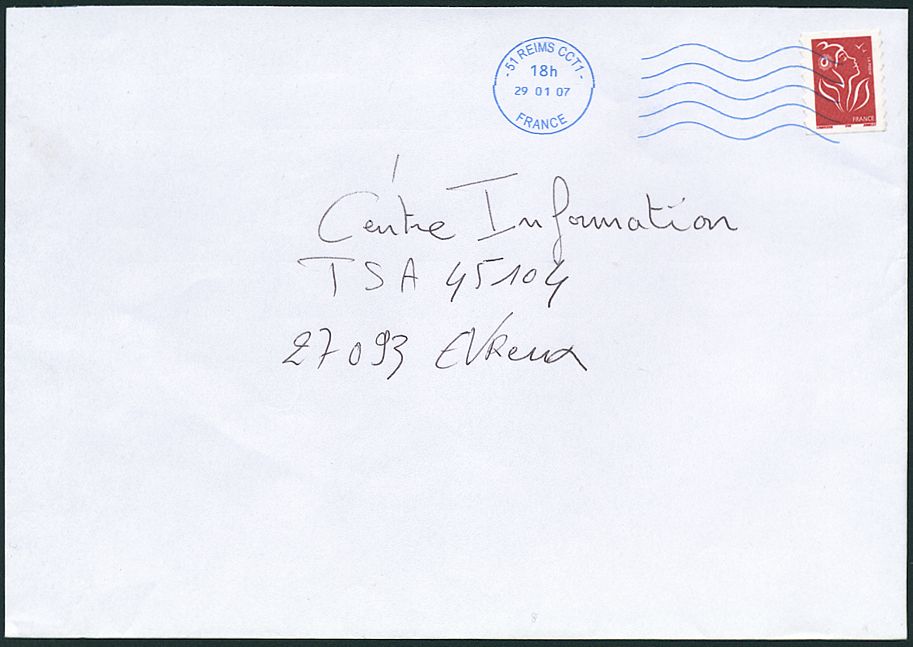 - 51 REIMS CCT1 -
18h
29 01 07
FRANCE
LA POSTE
FRANCE
Centre Information
TSA 45104
27093 EVReux